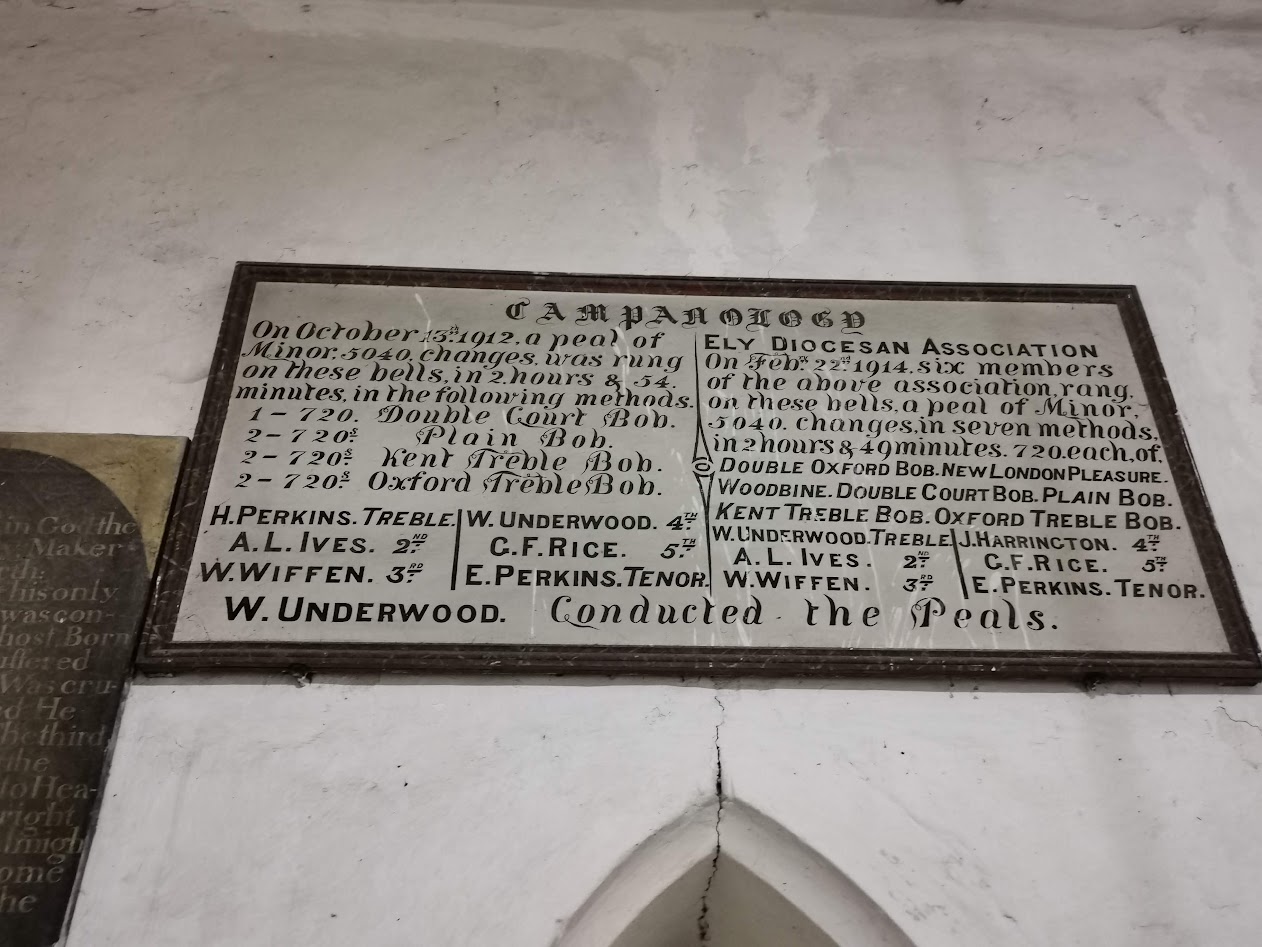 CAMPANOLOGY
On October 13th. 1912. a peal of
Minor. 5040. changes. was rung
on these bells, in 2 hours & 54.
minutes, in the following methods.
1 – 720. Double Court Bob.
2 – 720s. Plain Bob.
2 – 720s. Kent Treble Bob.
2 – 720s. Oxford Treble Bob.
H. PERKINS. TREBLE. W. UNDERWOOD. 4TH
A. L. IVES. 2ND C. F. RICE. 5TH
W. WIFFEN. 3RD E. PERKINS. TENOR.
ELY DIOCESAN ASSOCIATION
On Feby. 22nd 1914. six members
of the above association, rang.
on these bells, a peal of Minor,
5040. changes, in seven methods,
in 2 hours & 49 minutes. 720. each, of,
DOUBLE OXFORD BOB. NEW LONDON PLEASURE.
WOODBINE. DOUBLE COURT BOB. PLAIN BOB.
KENT TREBLE BOB. OXFORD TREBLE BOB.
W. UNDERWOOD. TREBLE J. HARRINGTON. 4TH
A. L. IVES. 2ND C. F. RICE. 5TH
W. WIFFEN. 3RD E. PERKINS. TENOR.
W. UNDERWOOD. Conducted the Peals.
in God the
Maker
his only
was con-
Born
uffered
Was cru-
He
the third
Hea-
right